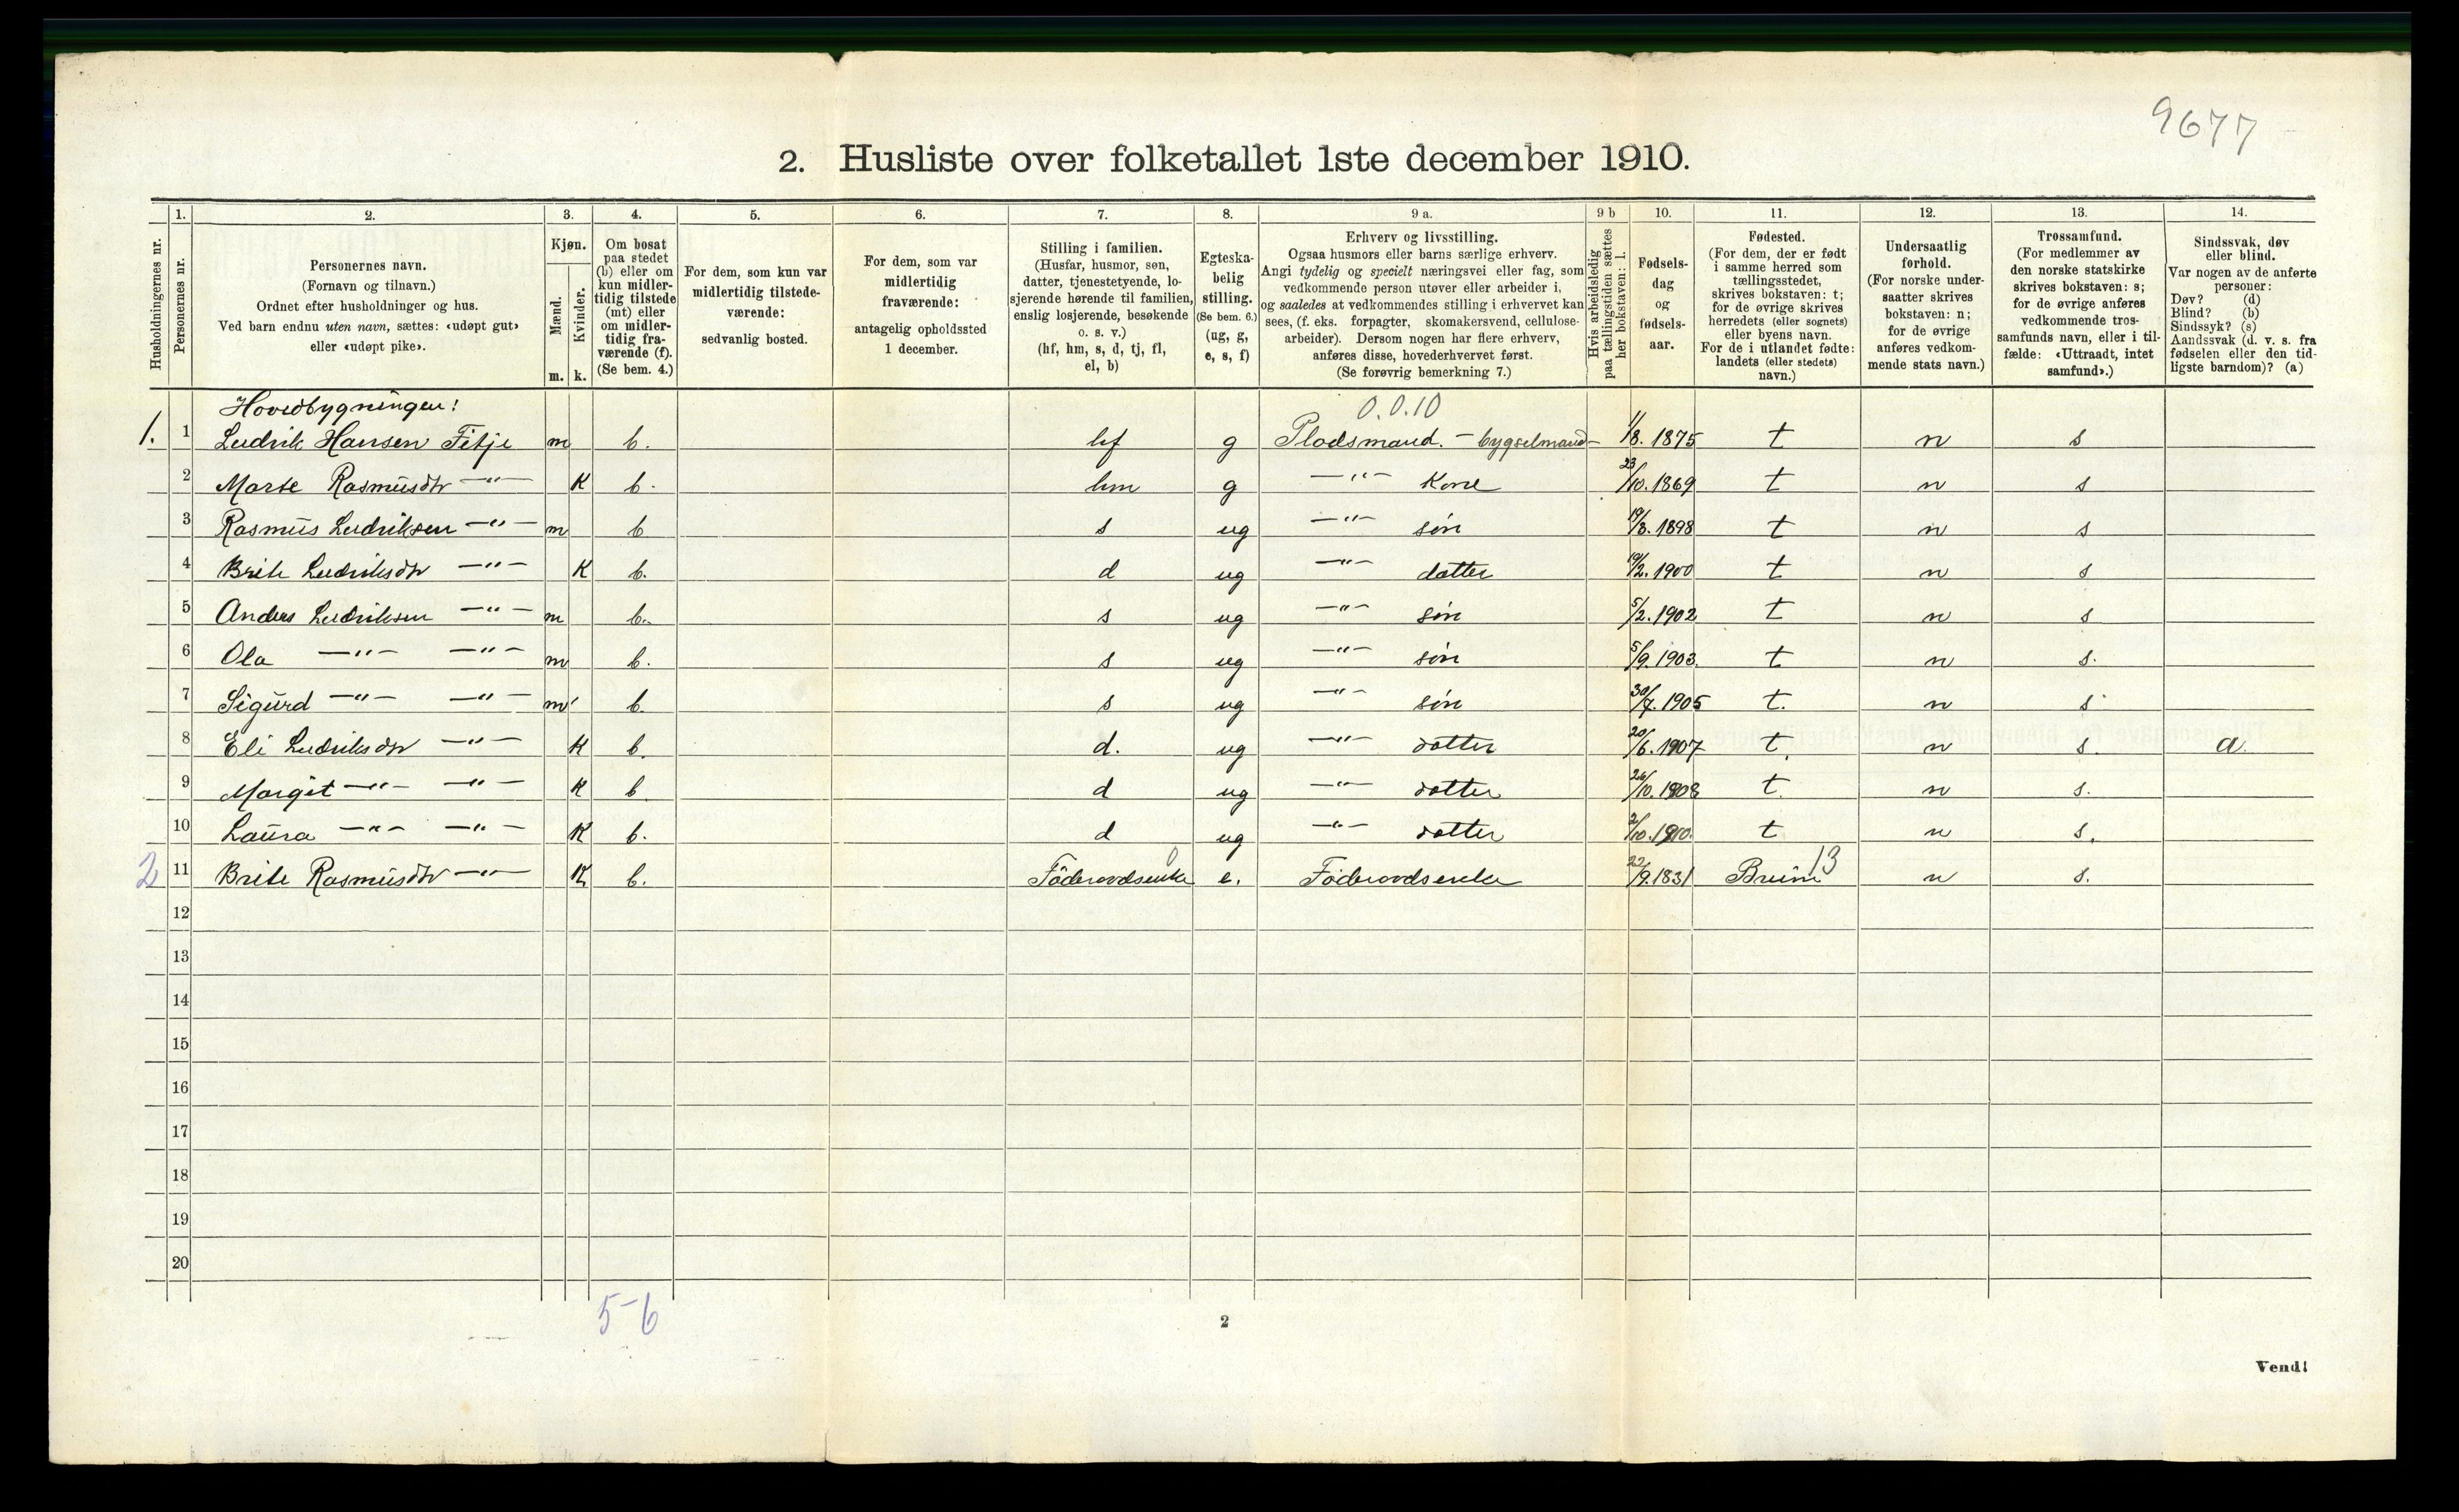 9677
2. Husliste over folketallet 1ste december 1910.
Husholdningernes nr.
1. Personernes nr.
2. Personernes navn.
(Fornavn og tilnavn.)
Ordnet efter husholdninger og hus.
Ved barn endnu uten navn, sættes: «udøpt gut»
eller «udøpt pike».
3. Kjøn.
Mænd. m.
Kvinder. k.
4. Om bosat
paa stedet
(b) eller om
kun midler-
tidig tilstede
(mt) eller
om midler-
tidig fra-
værende (f).
(Se bem. 4.)
5. For dem, som kun var
midlertidig tilstede-
værende:
sedvanlig bosted.
6. For dem, som var
midlertidig
fraværende:
antagelig opholdssted
1 december.
7. Stilling i familien.
(Husfar, husmor, søn,
datter, tjenestetyende, lo-
sjerende hørende til familien,
enslig losjerende, besøkende
o. s. v.)
(hf, hm, s, d, tj, fl,
el, b)
8. Egteska-
belig
stilling.
(Se bem. 6.)
(ug, g,
e, s, f)
9 a. Erhverv og livsstilling.
Ogsaa husmors eller barns særlige erhverv.
Angi tydelig og specielt næringsvei eller fag, som
vedkommende person utøver eller arbeider i,
og saaledes at vedkommendes stilling i erhvervet kan
sees, (f. eks. forpagter, skomakersvend, cellulose-
arbeider). Dersom nogen har flere erhverv,
anføres disse, hovederhvervet først.
(Se forøvrig bemerkning 7.)
9 b Hvis arbeidsledig
paa tællingstiden sættes
her bokstaven: l.
10. Fødsels-
dag
og
fødsels-
aar.
11. Fødested.
(For dem, der er født
i samme herred som
tællingsstedet,
skrives bokstaven: t;
for de øvrige skrives
herredets (eller sognets)
eller byens navn.
For de i utlandet fødte:
landets (eller stedets)
navn.)
12. Undersaatlig
forhold.
(For norske under-
saatter skrives
bokstaven: n;
for de øvrige
anføres vedkom-
mende stats navn.)
13. Trossamfund.
(For medlemmer av
den norske statskirke
skrives bokstaven: s;
for de øvrige anføres
vedkommende tros-
samfunds navn, eller i til-
fælde: «Uttraadt, intet
samfund».)
14. Sindssvak, døv
eller blind.
Var nogen av de anførte
personer:
Døv? (d)
Blind? (b)
Sindssyk? (s)
Aandssvak (d. v. s. fra
fødselen eller den tid-
ligste barndom)? (a)
Hovedbygningen! 0.0.10
1. 1 Ludvik Hansen Fitje m b. hf g Plodsmand. - bygselmand - 1/8. 1875 t n s
2 Marte Rasmusdtr —"— K b. hm g —"— Kone 23/10. 1869 t n s
3 Rasmus Ludviksen —"— m b s ug —"— søn 19/3. 1898 t n s
4 Brite Ludviksdtr —"— K b. d ug —"— datter 19/2. 1900 t n s
5 Anders Ludviksen —"— m b. s ug —"— søn 5/2. 1902 t n s
6 Ola —"— —"— m b. s ug —"— søn 5/9. 1903. t n s.
7 Sigurd —"— —"— m b. s ug —"— søn 30/7. 1905 t. n s
8 Eli Ludviksdtr —"— K b. d. ug —"— datter 20/6. 1907 t. n s. a.
9 Margit —"— —"— K b. d ug —"— datter 26/10. 1908 t. n s.
10 Laura —"— —"— K b. d ug —"— datter 2/10. 1910. t n s.
2 11 Brite Rasmusdtr —"— K b. Føderaadsenke 0 e. Føderaadsenke 22/9. 1831 Breim 13 n s.
12
13
14
15
16
17
18
19
20
5-6
2
Vend!